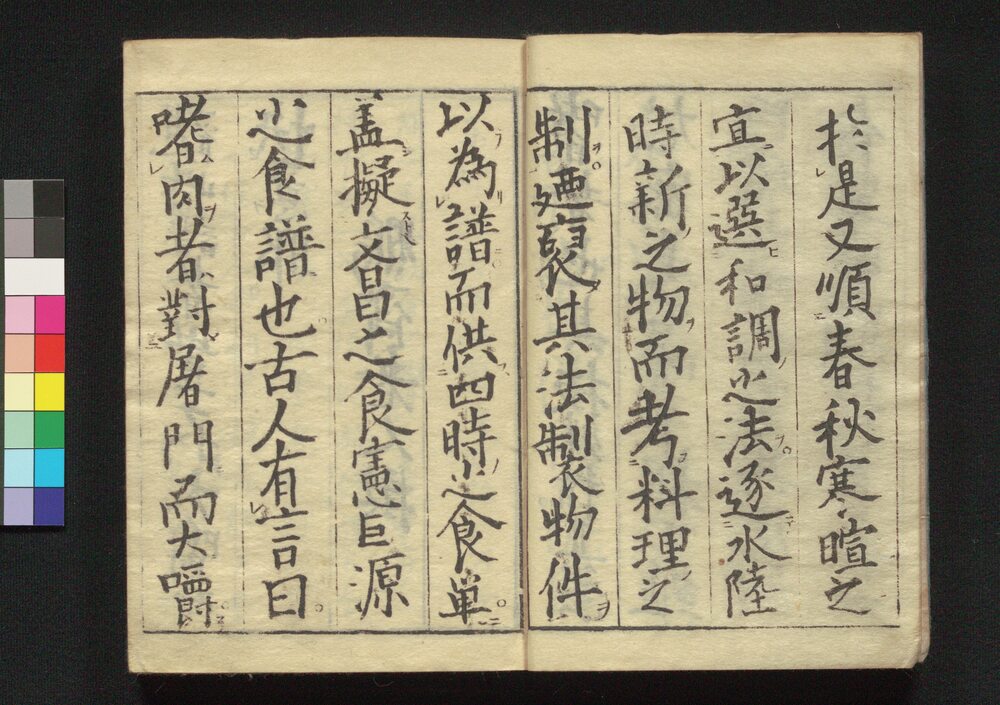 於是又順春秋寒暄之
宜以選和調之法逐水陸
時新之物而考料理之
制遷褒其法製物件
以為譜而供四時之食單
盖擬文昌之食憲巨源
之食譜也古人有言曰
嗜肉者對屠門而大嚼